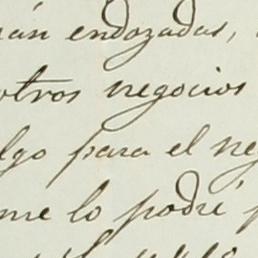 rán endozadas,
otros negocios
algo para el ne
me lo podré